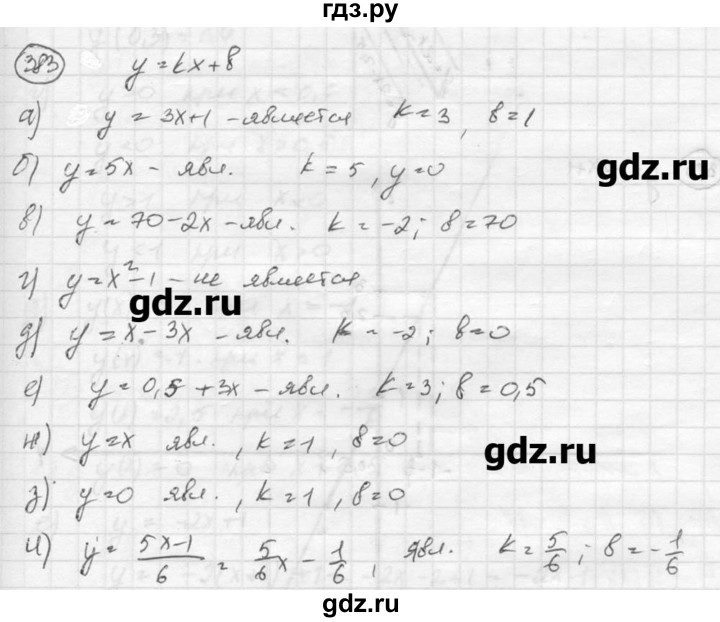 гдз.ру
383 y = kx + в
а) y = 3x+1 - является k=3, в=1
б) y=5x - явл. k=5, y=0
gdz.ru
в) y = 70-2x - явл. k=-2; в=70
г) y=x²-1 - не является
gdz.ru
д) y = x - 3x - явл. k = -2; в=0
е) y=0,5+3x - явл. k=3; в=0,5
ж) y=x явл., k=1, в=0
gdz.ru
з) y=0 явл., k=1, в=0
и) y = (5x-1)/6 = 5/6 x - 1/6, явл. k=5/6; в=-1/6
gdz.ru